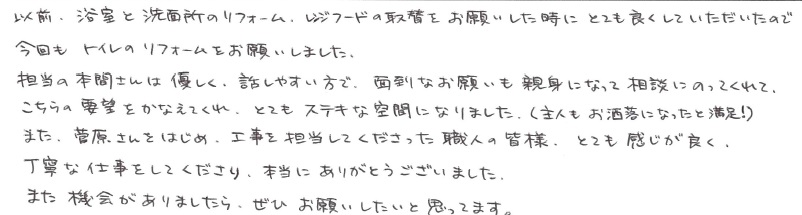 以前、浴室と洗面所のリフォーム、レンジフードの取替をお願いした時にとても良くしていただいたので
今回もトイレのリフォームをお願いしました。
担当の本間さんは優しく、話しやすい方で、面倒なお願いも親身になって相談にのってくれて、
こちらの要望をかなえてくれ、とてもステキな空間になりました。（主人もお洒落になったと満足!）
また、菅原さんをはじめ、工事を担当してくださった職人の皆様、とても感じが良く、
丁寧な仕事をしてくださり、本当にありがとうございました。
また機会がありましたら、ぜひお願いしたいと思ってます。